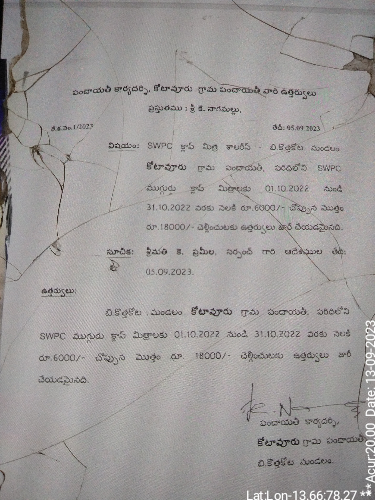 పంచాయతీ కార్యదర్శి, కోటావూరు గ్రామ పంచాయతీ వారి ఉత్తర్వులు
ప్రస్తుతము : శ్రీ కె. నాగమల్లు,
నె.క.నెం.1/2023 తేది: 05.09.2023
విషయం: SWPC క్లాప్ మిత్ర శాలరీస్ - బి.కొత్తకోట మండలం
కోటావూరు గ్రామ పంచాయతీ, పరిధిలోని SWPC
ముగ్గురు క్లాప్ మిత్రాలకు 01.10.2022 నుండి
31.10.2022 వరకు నెలకి రూ.6000/- చొప్పున మొత్తం
రూ.18000/- చెల్లించుటకు ఉత్తర్వులు జారీ చేయడమైనది.
సూచిక: శ్రీమతి కె. ప్రమీల, సర్పంచ్ గారి ఆదేశముల తేది:
05.09.2023.
ఉత్తర్వులు:
బి.కొత్తకోట మండలం కోటావూరు గ్రామ పంచాయతీ, పరిధిలోని
SWPC ముగ్గురు క్లాప్ మిత్రాలకు 01.10.2022 నుండి 31.10.2022 వరకు నెలకి
రూ.6000/- చొప్పున మొత్తం రూ. 18000/- చెల్లించుటకు ఉత్తర్వులు జారీ
చేయడమైనది.
పంచాయతీ కార్యదర్శి,
కోటావూరు గ్రామ పంచాయతీ
బి.కొత్తకోట మండలం.
Lat:Lon-13.66:78.27 ***Acur:20.00 Date: 13-09-2023